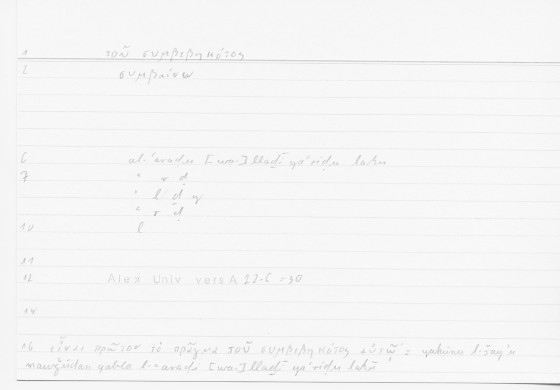 1 τοῦ συμβεβηκότος
2 συμβαίνω
6 al-ʿaraḍu [wa-]llaḏī yaʿriḍu lahu
7 ʿ r ḍ
ʾ l ḏ y
ʿ r ḍ
10 l
11
12 Alex Univ vers A 22-6 = 30
14
16 εἶναι πρῶτον τὸ πρᾶγμα τοῦ συμβεβηκότος αὐτῷ = yakūnu l-šayʾu
mawǧūdan qabla l-ʿaraḍi [wa-]llaḏī yaʿriḍu lahū